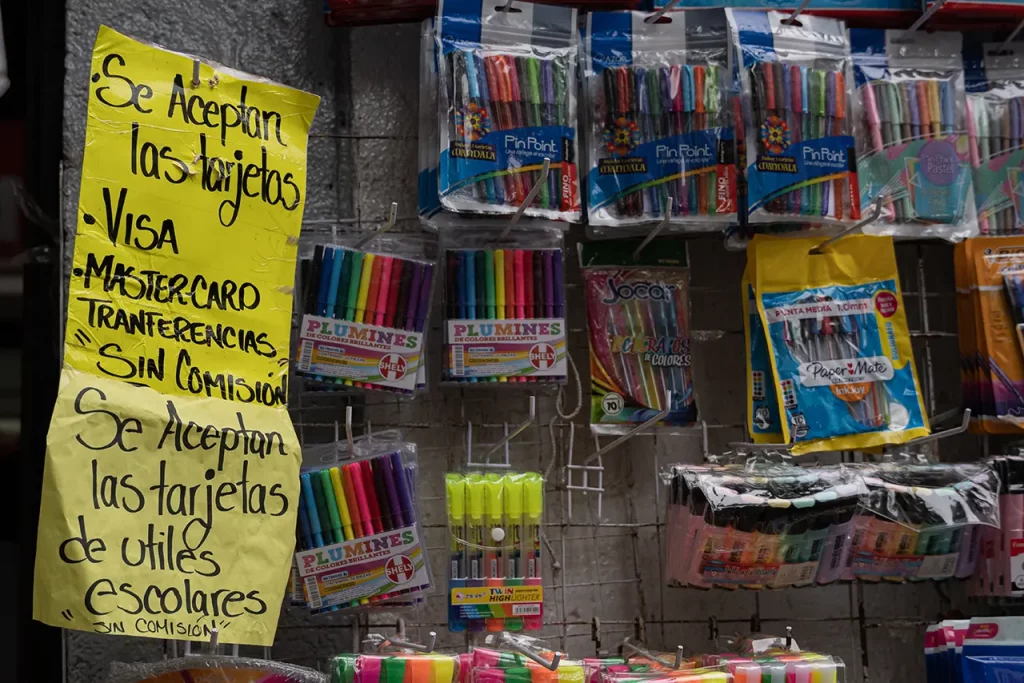 ·Se Aceptan
las tarjetas
·VISA
·MASTERCARD
TRANFERENCIAS
"SIN COMISIÓN"
Se Aceptan
las tarjetas
de utiles
escolares
"SIN COMISIÓN"
PinPoint
MANDALA
FINO
PinPoint
MANDALA
FINO
PinPoint
MANDALA
FINO
Pastel
PLUMINES
DE COLORES BRILLANTES
SHELY
PLUMINES
DE COLORES BRILLANTES
SHELY
Jocar
DE COLORES
10
PUNTA MEDIA 1.0mm
Paper Mate
InkJoy
PLUMINES
DE COLORES BRILLANTES
SHELY
TWIN
HIGHLIGHTER